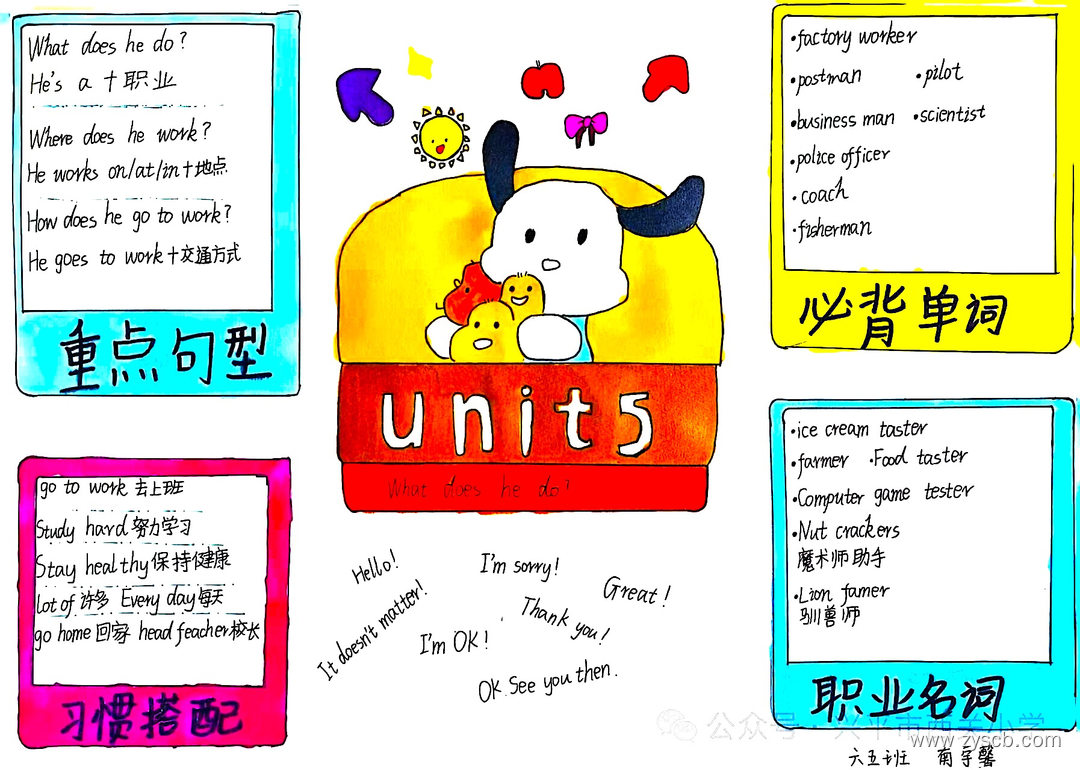 What does he do?
He's a 十 职业
Where does he work?
He works on/at/in十地点
How does he go to work?
He goes to work十交通方式
重点句型
go to work 去上班
Study hard 努力学习
Stay healthy 保持健康
lot of 许多 Every day 每天
go home 回家 head feacher 校长
习惯搭配
unit5
What does he do?
Hello!
It doesn't matter!
I'm sorry!
I'm OK!
Thank you!
Great!
OK. See you then.
·factory worker
·postman ·pilot
·business man ·scientist
·police officer
·coach
·fisherman
必背单词
·ice cream taster
·farmer ·Food taster
·Computer game tester
·Nut crackers
魔术师助手
·Lion famer
驯兽师
职业名词
公众号·兴平市西关小学
www.zyscb.com
六五班